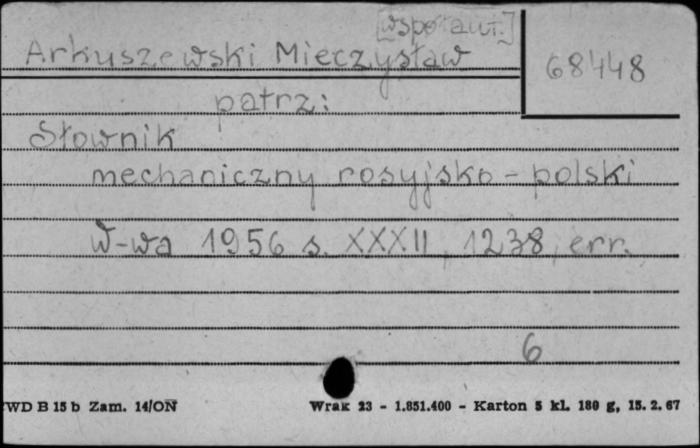 [współaut.]
Arkuszewski Mieczysław
68448
patrz:
Słownik
mechaniczny rosyjsko-polski
W-wa 1956 s. XXXII, 1238, err.
6
WD B 15 b Zam. 14/ON Wrak 23 - 1.851.400 - Karton 5 kl. 180 g, 15. 2. 67